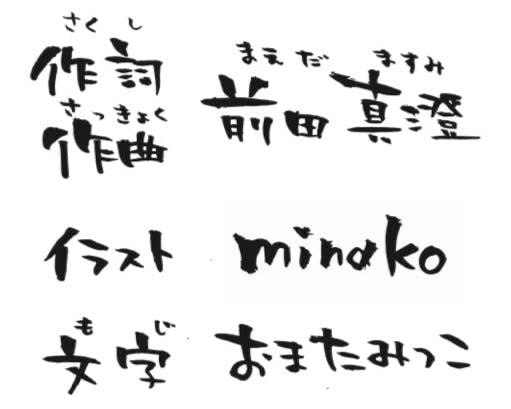 さくし
作詞
さっきょく
作曲
まえだ ますみ
前田真澄
イラスト minako
もじ
文字 おまたみつこ